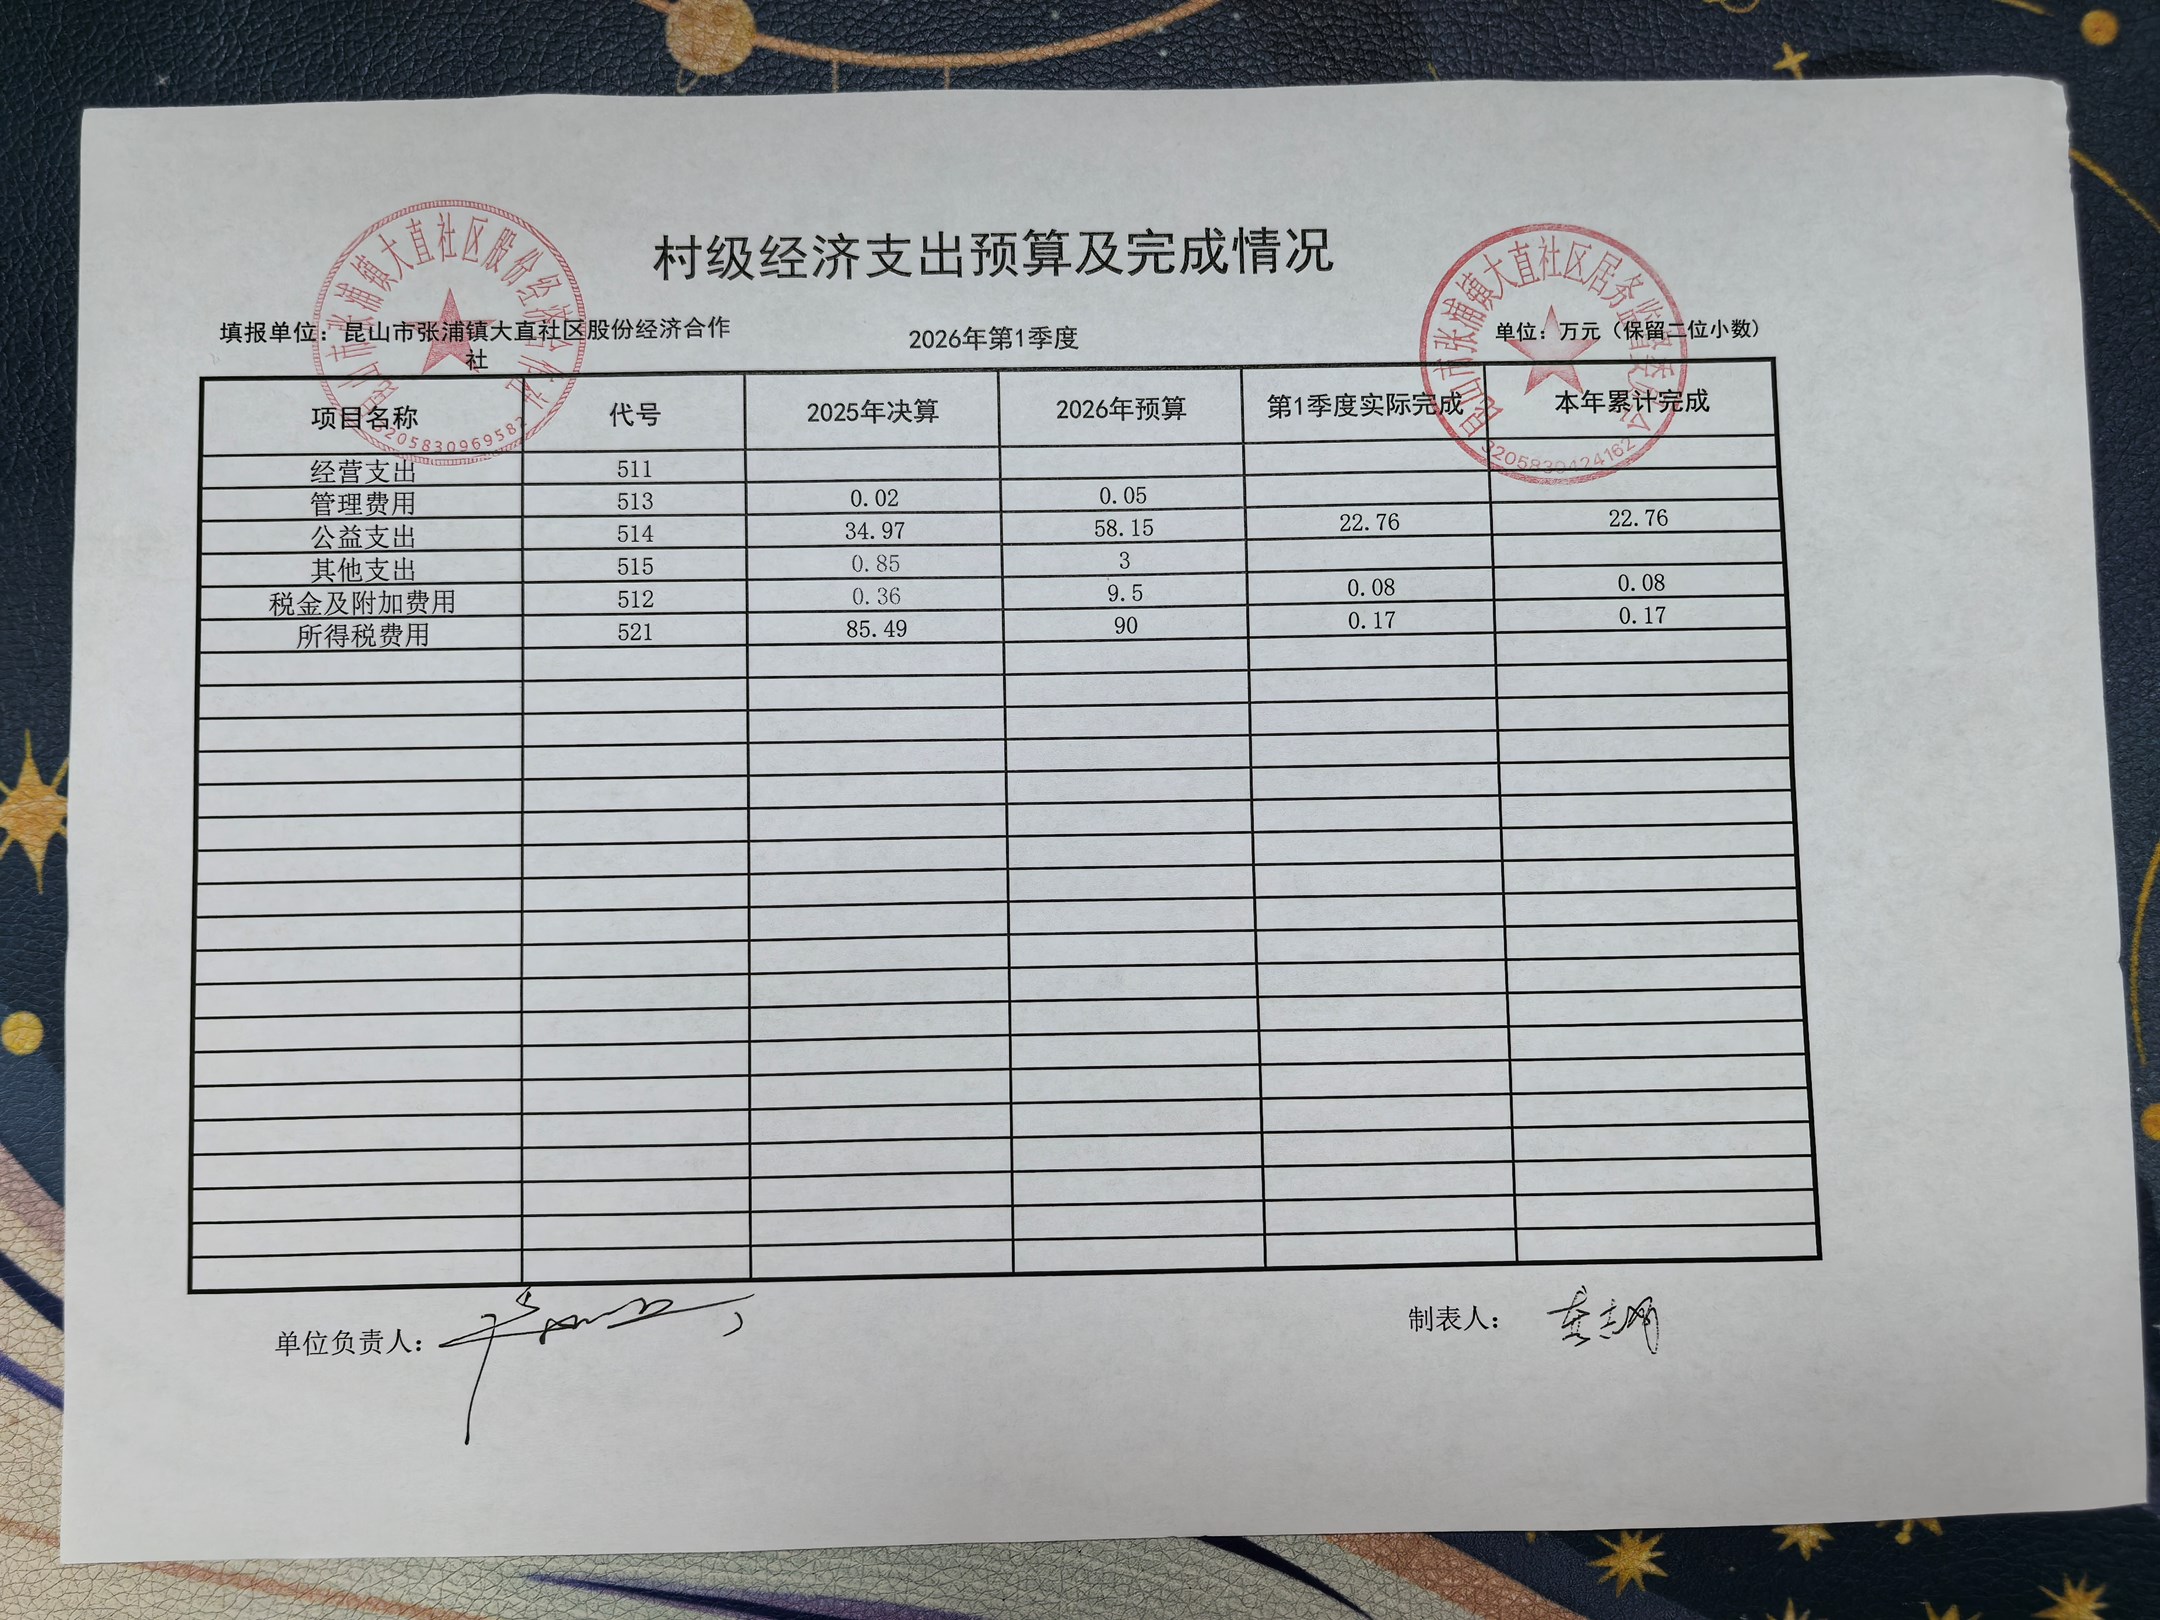 村级经济支出预算及完成情况
填报单位：昆山市张浦镇大直社区股份经济合作
社
2026年第1季度
单位：万元（保留二位小数）
昆山市张浦镇大直社区股份经济合作社
3205830969582
昆山市张浦镇大直社区居务监督委员会
3205830424162
项目名称 代号 2025年决算 2026年预算 第1季度实际完成 本年累计完成
经营支出 511
管理费用 513 0.02 0.05
公益支出 514 34.97 58.15 22.76 22.76
其他支出 515 0.85 3
税金及附加费用 512 0.36 9.5 0.08 0.08
所得税费用 521 85.49 90 0.17 0.17
单位负责人：
制表人：